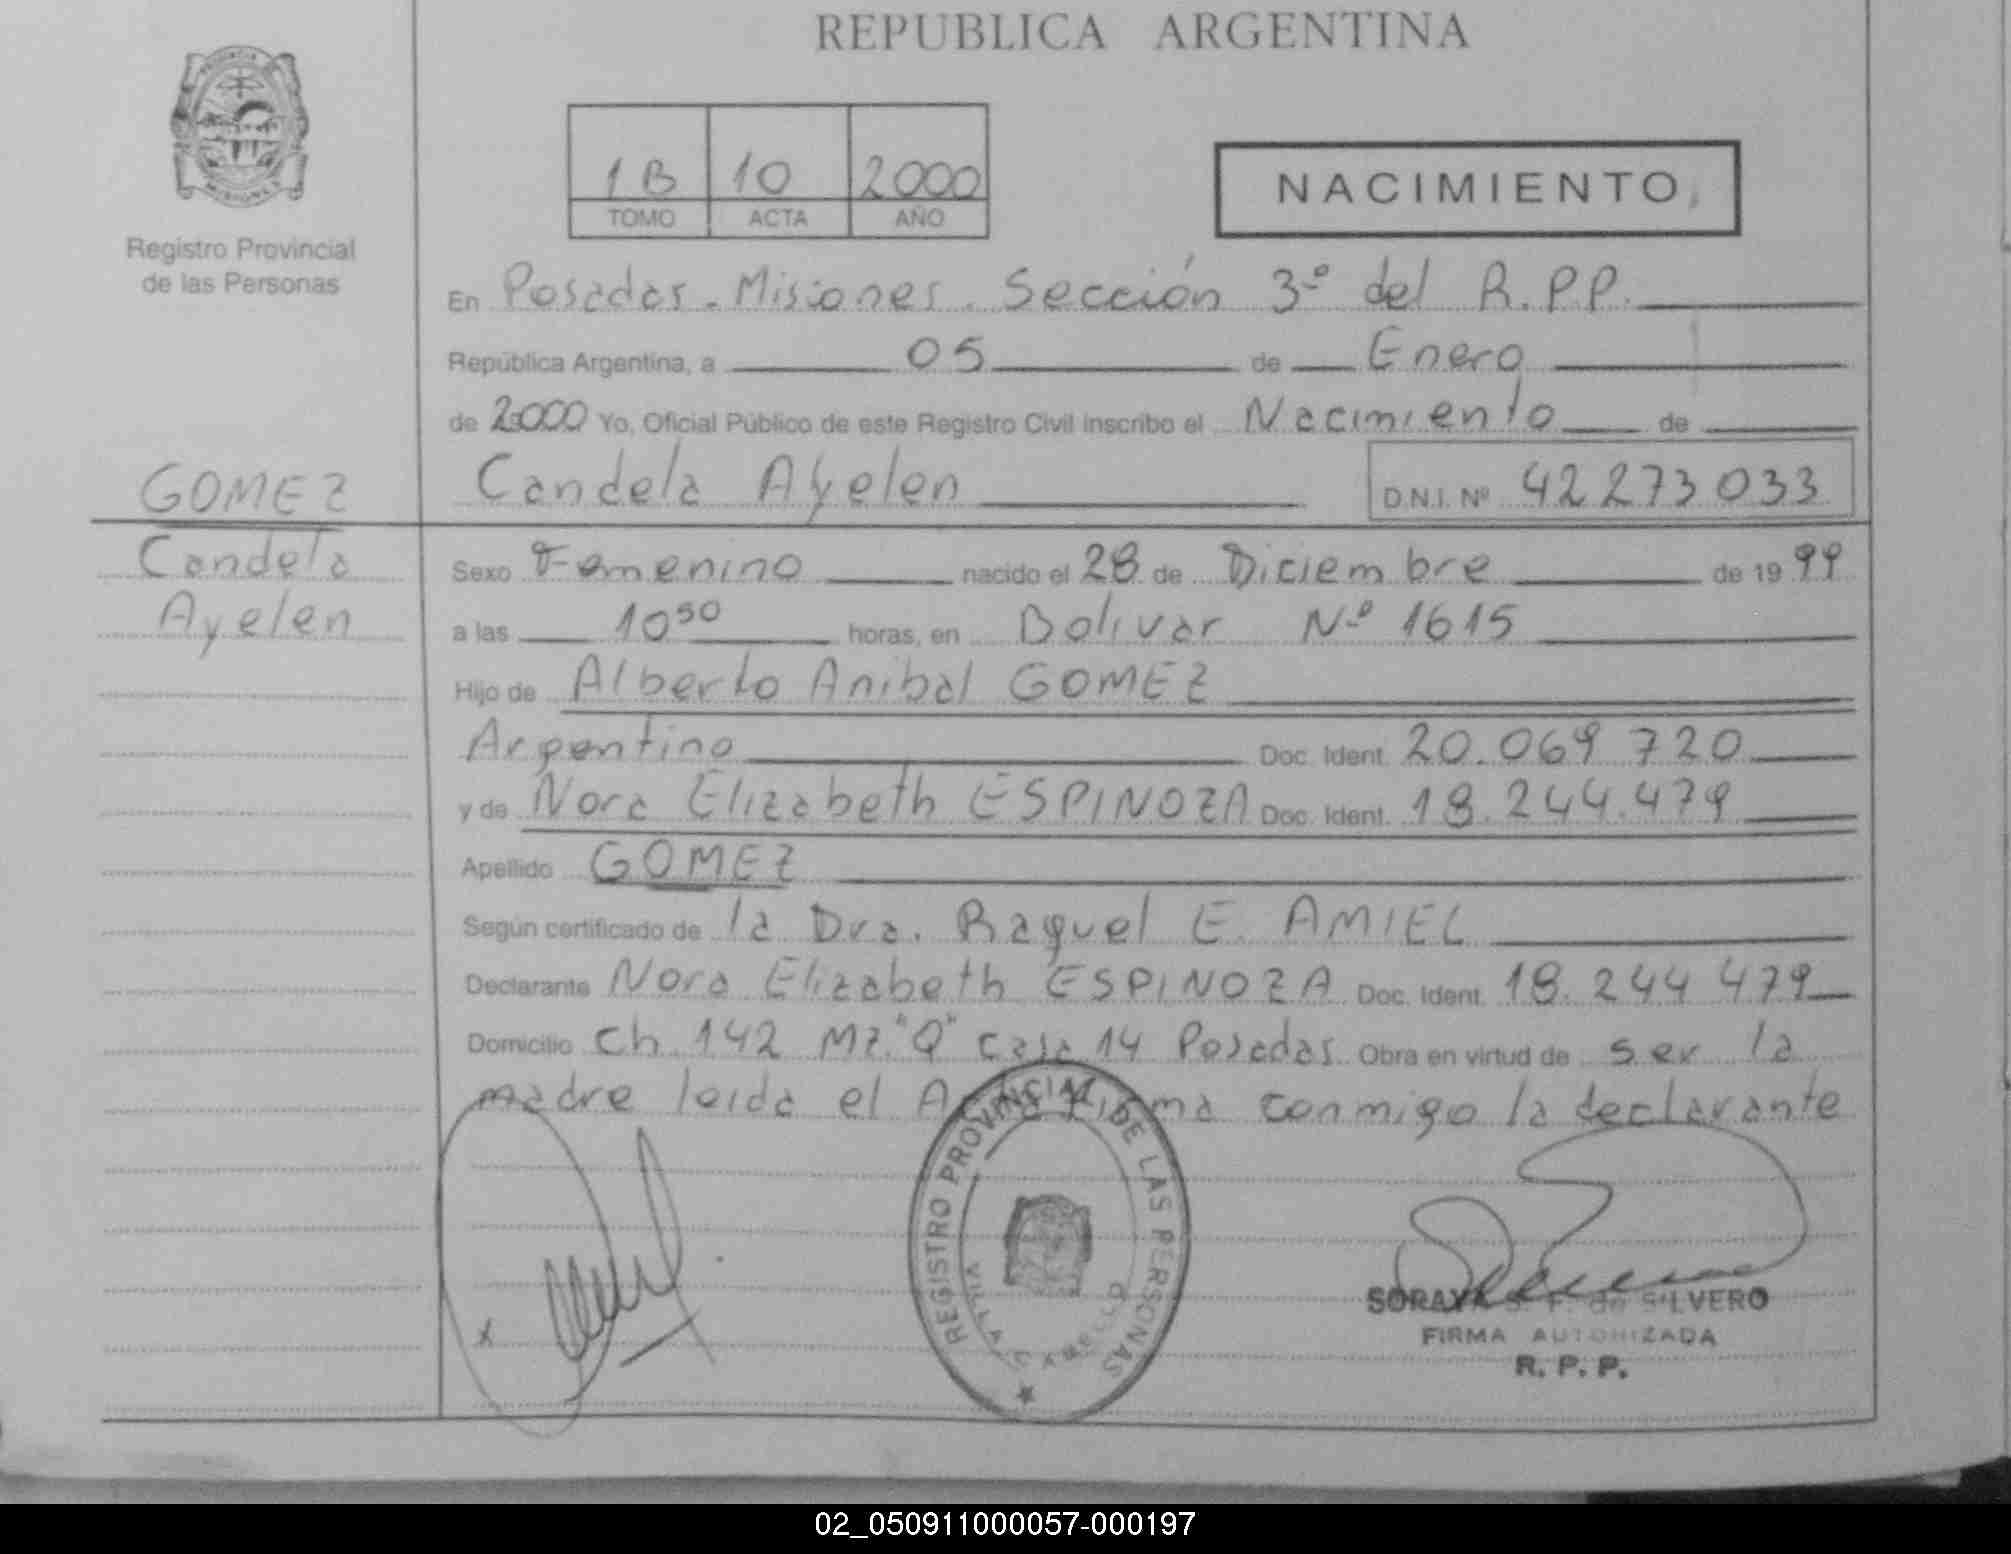 REPUBLICA ARGENTINA
Registro Provincial
de las Personas
1B 10 2000
TOMO ACTA AÑO
NACIMIENTO
En Posadas - Misiones. Sección 3º del R.P.P.
República Argentina, a 05 de Enero
de 2000 Yo, Oficial Público de este Registro Civil inscribo el Nacimiento de
GOMEZ
Candela Ayelen D.N.I. Nº 42273033
Candela
Ayelen
Sexo Femenino nacido el 28 de Diciembre de 1999
a las 10 50 horas, en Bolivar Nº 1615
Hijo de Alberto Anibal GOMEZ
Argentino Doc. Ident. 20.069 720
y de Nora Elizabeth ESPINOZA Doc. Ident. 18.244.479
Apellido GOMEZ
Según certificado de la Dra. Raquel E. AMIEL
Declarante Nora Elizabeth ESPINOZA Doc. Ident. 18.244 479
Domicilio Ch 142 Mz "Q" casa 14 Posadas Obra en virtud de ser la
madre leida el Acta firma conmigo la declarante
REGISTRO PROVINCIAL DE LAS PERSONAS
VILLA CABELLO
SORAYA S. F. de SILVERO
FIRMA AUTORIZADA
R. P. P.
02_050911000057-000197